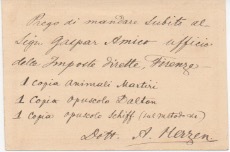 Prego di mandare subito al
Sigr. Gaspar Amico ufficio
delle Imposte Dirette, Firenze:
1 Copia Animali Martiri
1 Copia Opuscolo Dalton
1 Copia opuscolo Schiff (sul metodo &c)
Dott. A. Herzen